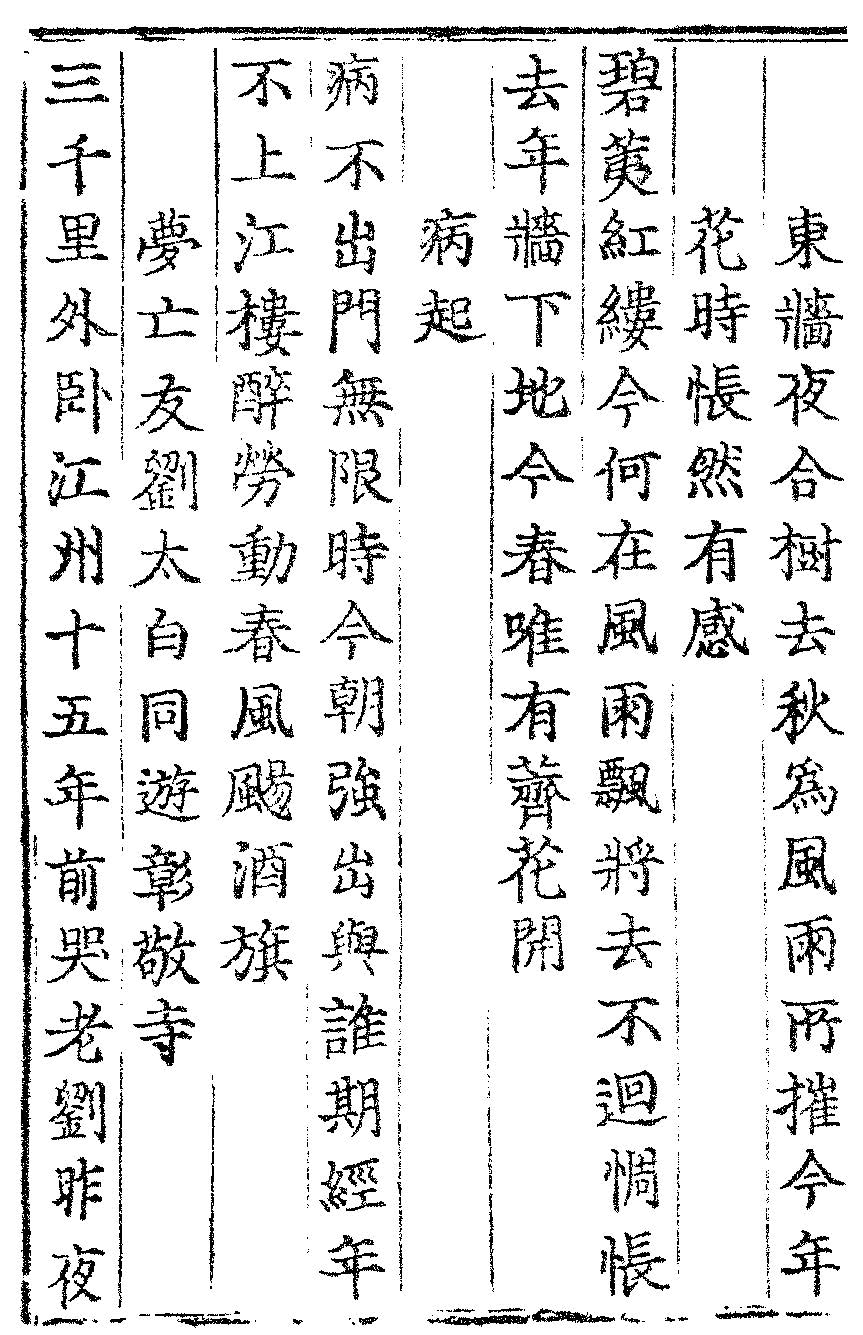 東牆夜合樹去秋爲風雨所摧今年
花時悵然有感
碧荑紅縷今何在風雨飄將去不迴惆悵
去年牆下地今春唯有薺花開
病起
病不出門無限時今朝強出與誰期經年
不上江樓醉勞動春風颺酒旗
夢亡友劉太白同遊彰敬寺
三千里外卧江州十五年前哭老劉昨夜